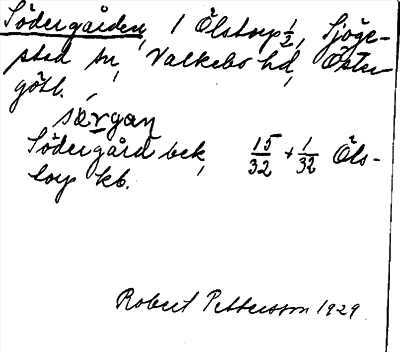 Södergården, 1 Ölstorp 1/2, Sjöge-
stad sn, Valkebo hd, Öster-
götl.
særgaɳ
Södergård bek, 15/32 + 1/32 Öls-
torp kb.
Robert Pettersson 1929